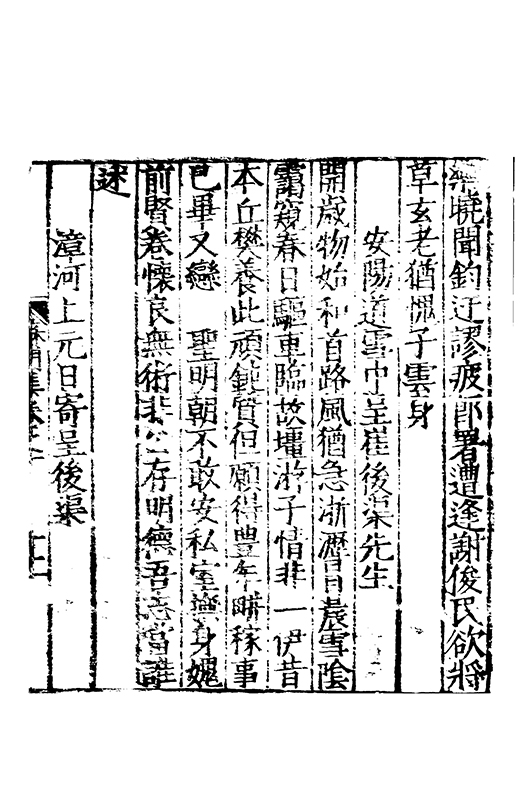 樂曉聞鈞迂謬疲郎署遭逢謝俊民欲將
草玄老猶愧子雲身
安陽道雪中呈崔後渠先生
開歲物始和首路風猶急淅瀝日晨雪陰
靄窺春日驅車臨故壃游子情非一伊昔
本丘樊養此頑鈍質但願得豊年畊稼事
已畢又戀　聖明朝不敢安私室撫身媿
前賢卷懷良無術非公存明德吾志當誰
述
漳河上元日寄呈後渠